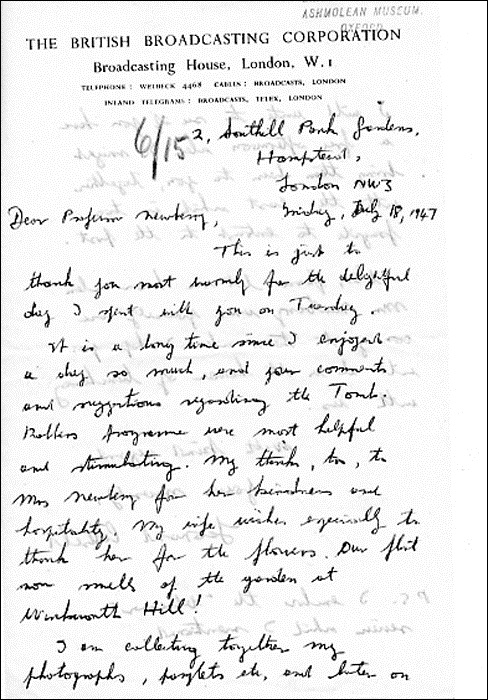 ASHMOLEAN MUSEUM.
OXFORD
THE BRITISH BROADCASTING CORPORATION
Broadcasting House, London, W.1
TELEPHONE: WELBECK 4468 CABLES: BROADCASTS, LONDON
INLAND TELEGRAMS: BROADCASTS, TELEX, LONDON
6/15
2, South Hill Park Gardens,
Hampstead,
London NW3
Dear Professor Newberry,
Friday, July 18, 1947
This is just to
thank you most warmly for the delightful
day I spent with you on Tuesday.
It is a long time since I enjoyed
a day so much, and your comments
and suggestions regarding the Tomb-
Robbers programme were most helpful
and stimulating. My thanks, too, to
Mrs Newberry for her kindness and
hospitality. My wife wishes especially to
thank her for the flowers. Our flat
now smells of the garden at
Winkworth Hill!
I am collecting together my
photographs, pamphlets etc, and later on